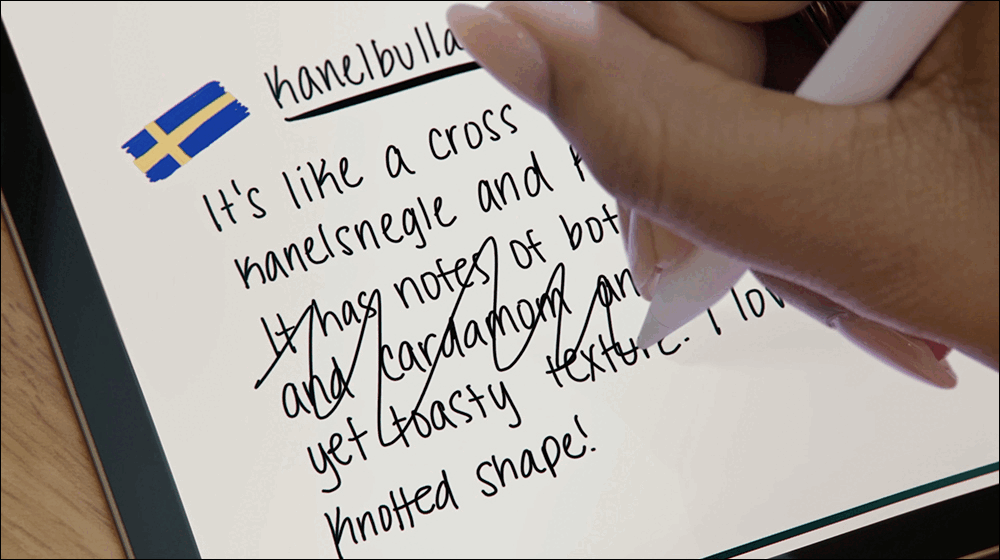 Kanelbulla
It's like a cross
kanelsnegle and
It has notes of
and cardamom
yet toasty texture. I
knotted shape!